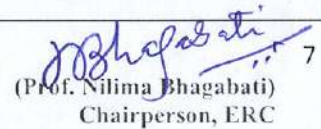 NBhagabati
7
(Prof. Nilima Bhagabati)
Chairperson, ERC